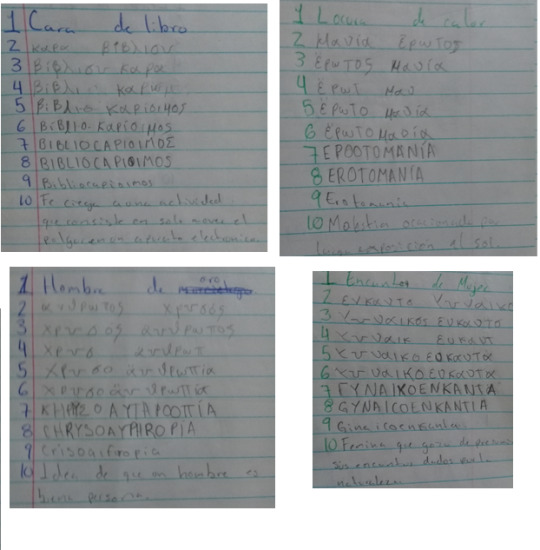 1 Cara de libro
2 καρα Βιβλιον
3 Βιβλιον καρα
4 Βιβλι
5 ΒιΒλιο καριοιμος
6 ΒΙΒΛΙΟ-ΚΑΡΙΟΙΜΟΣ
7 BIBLIOCAPIOIMOΣ
8 BIBLIOCAPIOIMOS
9 Bibliocapioimos
10 Fe ciega a una actividad
que consiste en solo mover el
pulgar en un aparato electronico
1 Locura de calor
2 Μανία Έρωτος
3 Έρωτος Μανία
4 Έρωτ Μαν
5 Έρωτο μανία
6 Έρωτο μανία
7 ΕΡΩΟΤΟΜΑΝΙΑ
8 EROTOMANIA
9 Erotomania
10 ocasionado por
larga exposición al sol.
1 Hombre de oro
2 ανθρωπος χρυσός
3 χρυσός ανθρωπος
4 χρυσ ανθρωπ
5 χρυσο ανθρωπία
6 χρυσοανθρωπία
7
8 CHRYSOAYPIROPIA
9 Crisoafiropia
10 Idea de que un hombre es
buena persona.
1 Encantos de Mujer
2 ευκαντο γυναικο
3 γυναικος ευκαντο
4 γυναικ ευκαντ
5 γυναικο ευκαντα
6 γυναικο ευκαντα
7 ΓΥΝΑΙΚΟΕΝΚΑΝΤΙΑ
8 GYNAICOENKANTIA
9 Ginaicoenkantia
10 Femina que goza de
sin encantos dados por la
naturaleza.